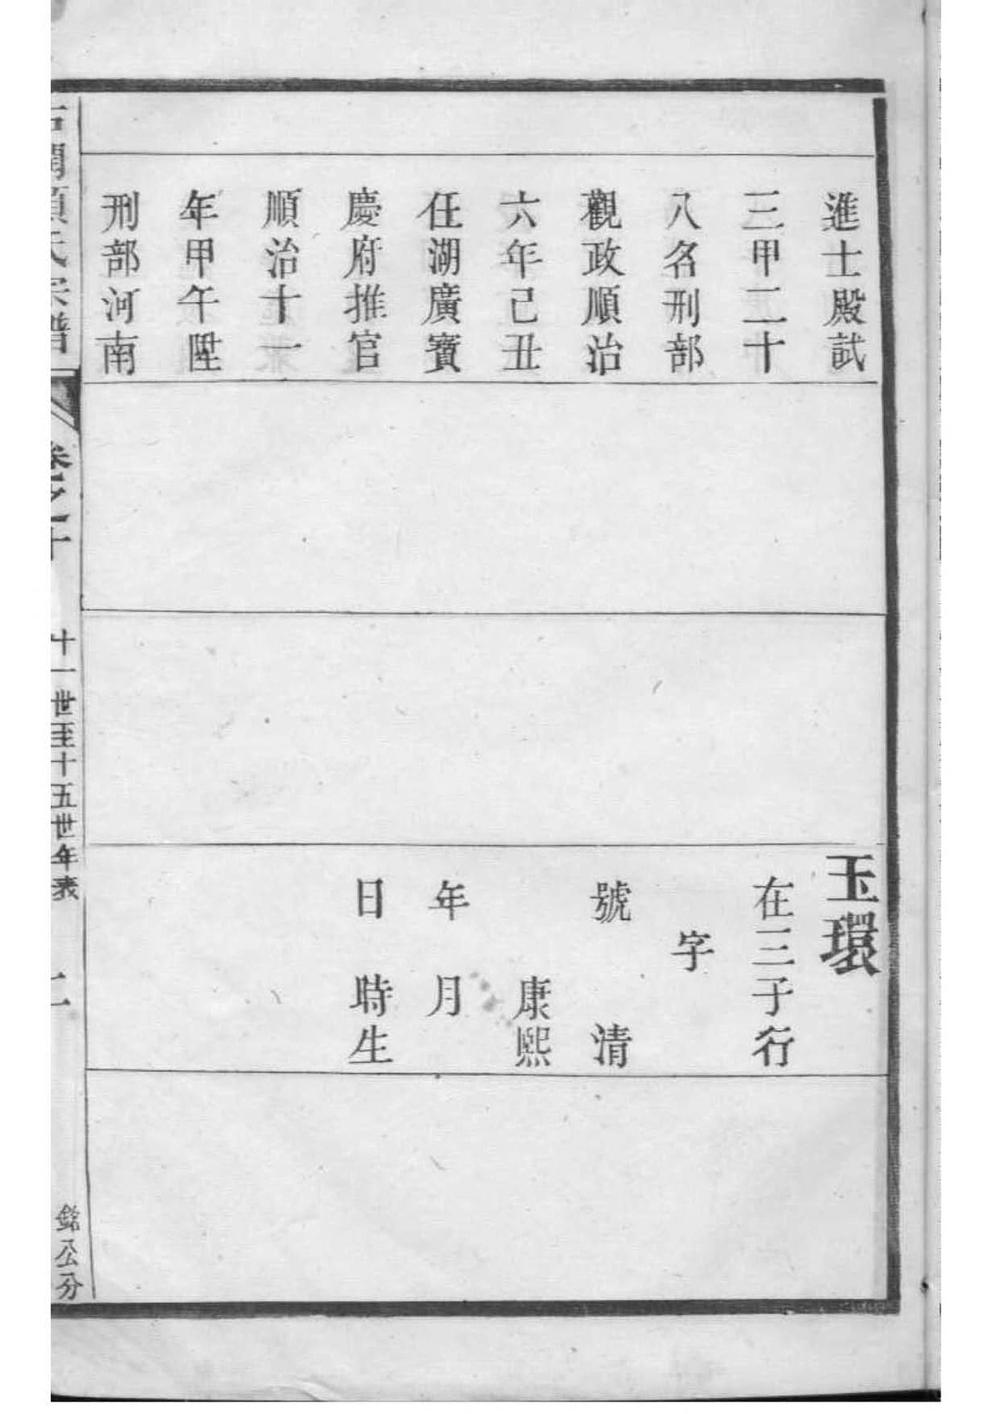 進士殿試
三甲二十
八名刑部
觀政順治
六年己丑
任湖廣寳
慶府推官
順治十一
年甲午陞
刑部河南
玉環
在三子行
字
號 清
康熙
年 月
日 時生
氏宗譜
卷之十
十一世至十五世年表
二
公分